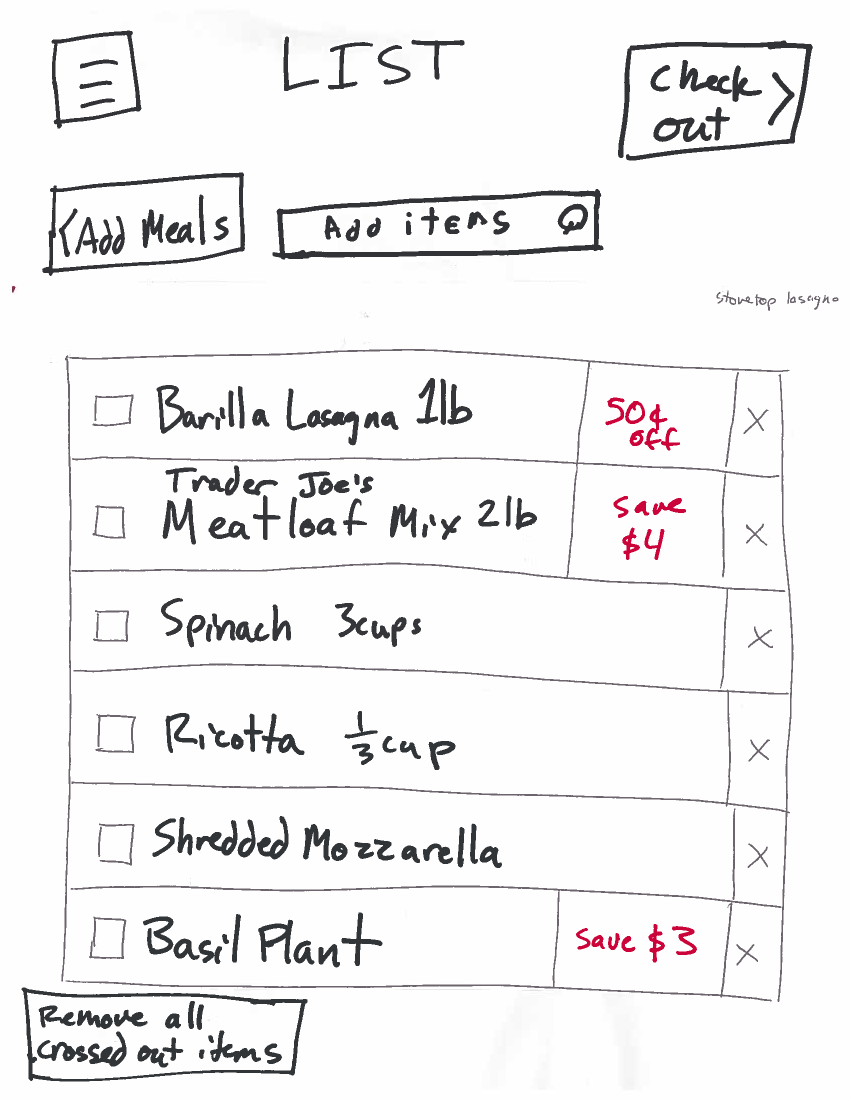 LIST
Check
out >
< Add Meals
Add items
stovetop lasagna
Barilla Lasagna 1lb
50¢
off
X
Trader Joe's
Meatloaf Mix 2lb
Save
$4
X
Spinach 3cups
X
Ricotta 1/3 cup
X
Shredded Mozzarella
X
Basil Plant
Save $3
X
Remove all
crossed out items